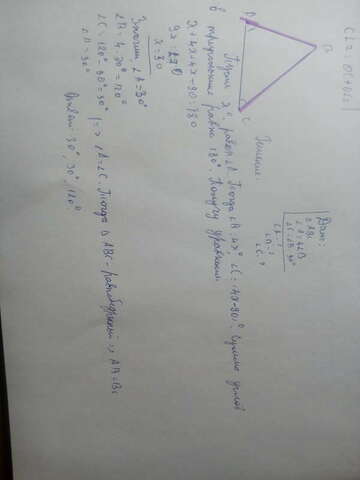 Дано:
△ABC
∠C=∠B-90°
∠A-?
∠B-?
∠C-?
B
C
Решение:
Пусть x° равен ∠A. Тогда ∠B=4x°, ∠C=4x-90°. Сумма углов
в треугольнике равна 180°. Получу уравнение.
x+4x+4x-90=180
9x=270
x=30
Значит ∠A=30°
∠B=4·30°=120°
∠C=120°-90°=30° | => ∠A=∠C. Тогда △ABC- равнобедренный => AB=BC
∠A=30°
Ответ: 30°, 30°, 120°